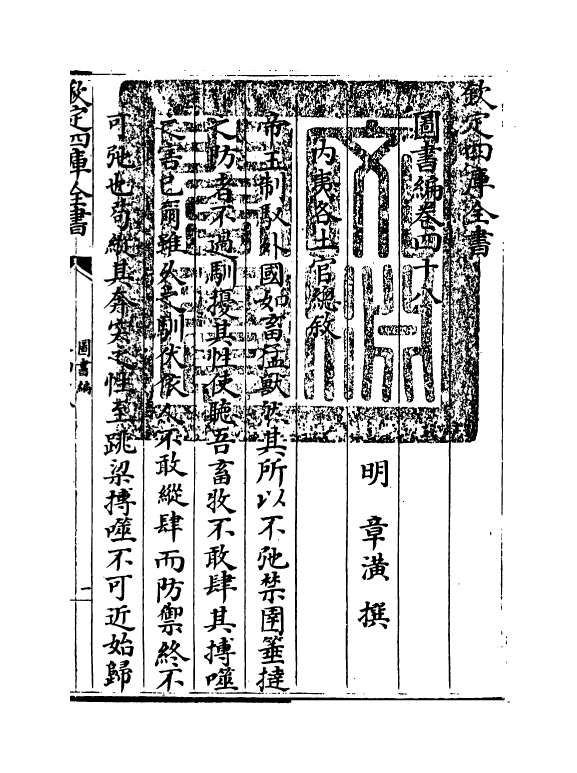 欽定四庫全書
圖書編卷四十八
明 章潢 撰
內夷各土官總敘
帝王制馭外國如畜猛獸然其所以不弛禁圉箠撻
之防者不過馴擾其性使聽吾畜牧不敢肆其搏噬
之害已爾雖久之馴伏依人不敢縱肆而防禦終不
可弛也苟縱其奔突之性至跳梁搏噬不可近始歸
欽定四庫全書
圖書編
一